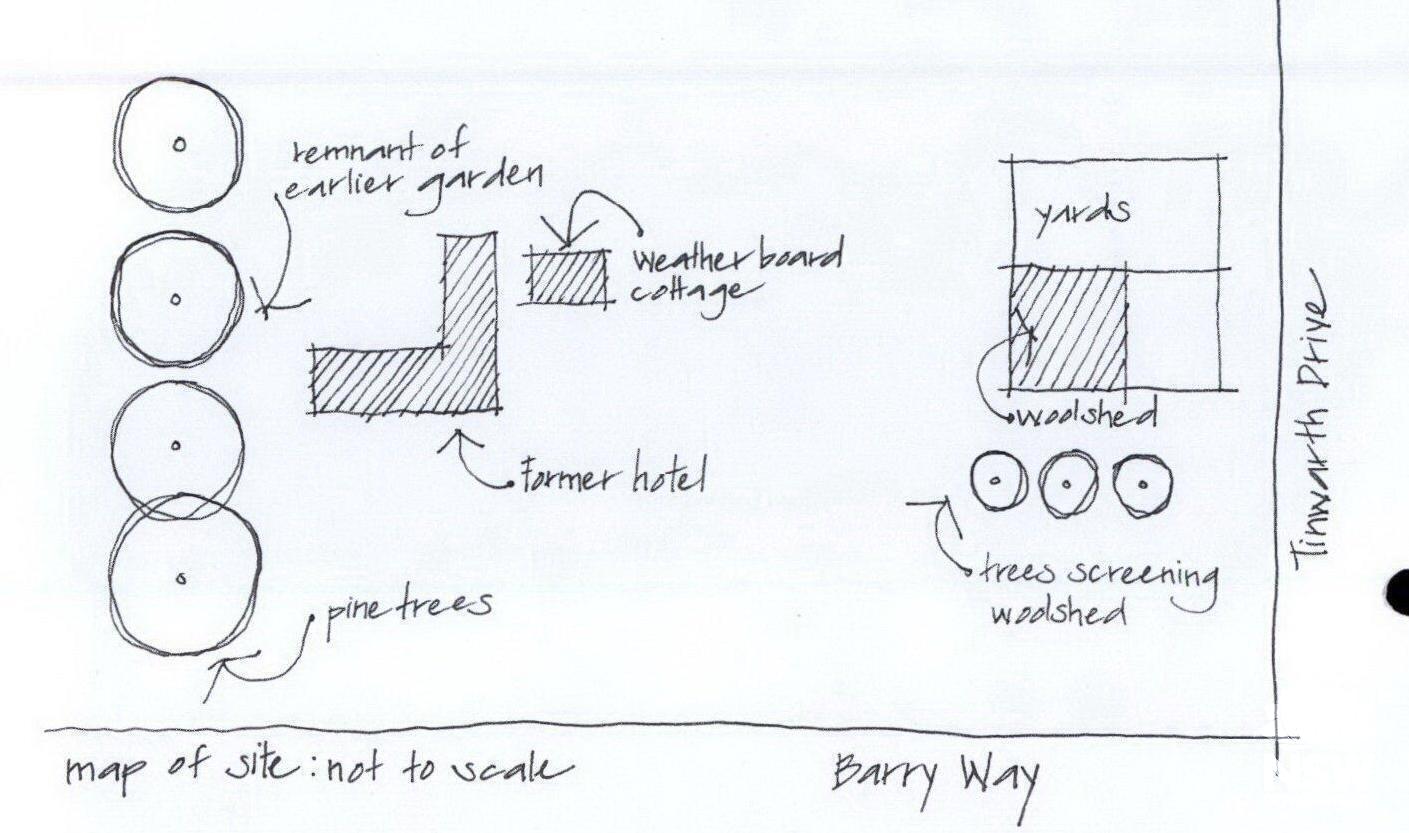 remnant of
earlier garden
weatherboard
cottage
Former hotel
pine trees
yards
woolshed
trees screening
woolshed
Tinwarth Drive
map of site: not to scale
Barry Way